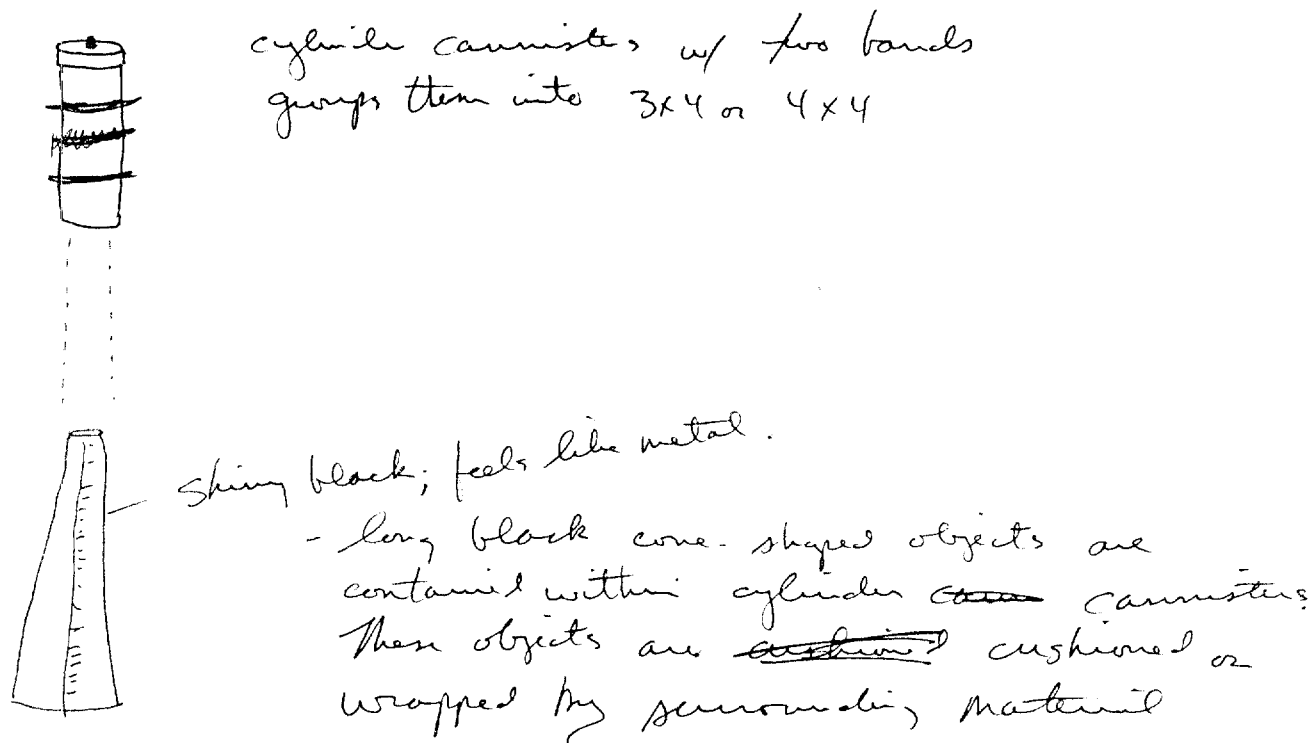 cylinder cannisters w/ two bands
groups them into 3x4 or 4x4
Shiny black; feels like metal.
- long black cone-shaped objects are
contained within cylinder cannisters
These objects are cushioned or
wrapped by surrounding material